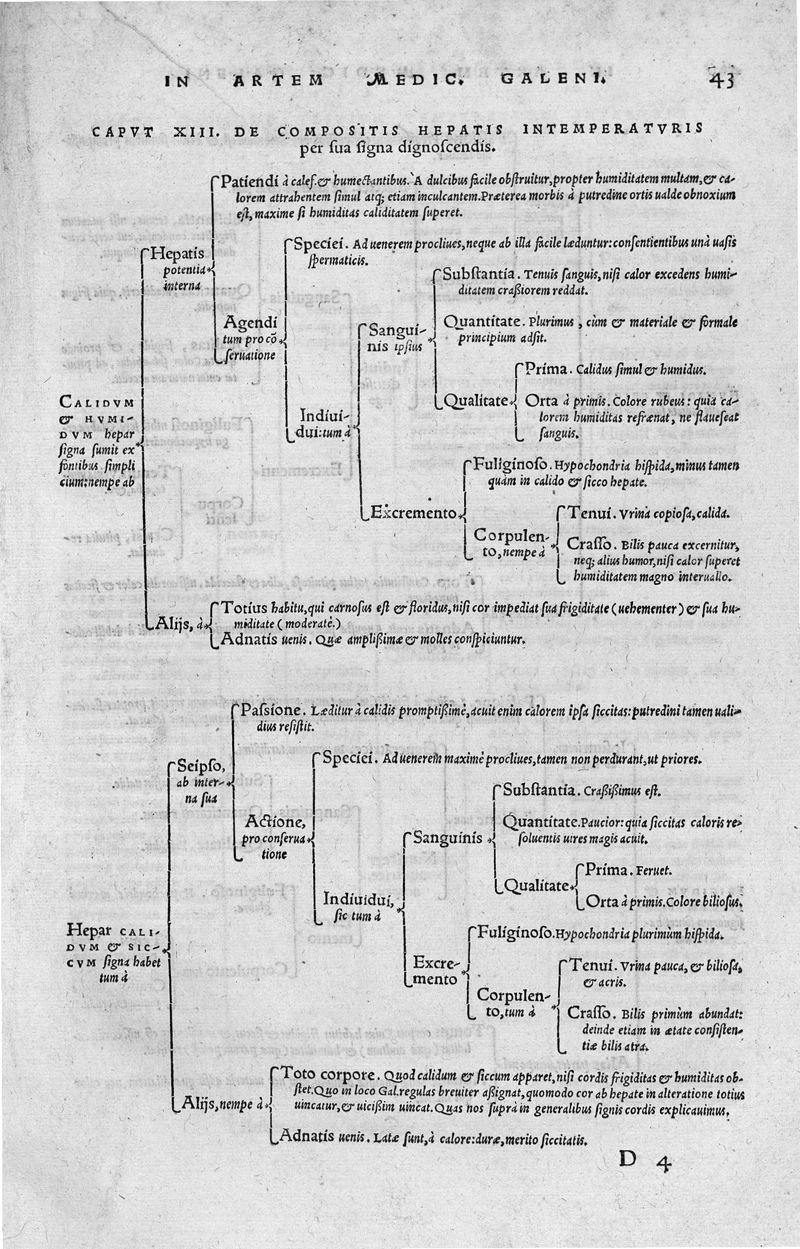 IN ARTEM MEDIC. GALENI. 43
CAPVT XIII. DE COMPOSITIS HEPATIS INTEMPERATVRIS
per sua signa dignoscendis.
Patiendi à calef. & humectantibus. A dulcibus facile obstruitur, propter humiditatem multam, & ca-
lorem attrahentem simul atq; etiam inculcantem. Præterea morbis à putredine ortis ualde obnoxium
est, maxime si humiditas caliditatem superet.
Hepatis
potentia
interna
Speciei. Ad uenerem procliues, neque ab illa facile læduntur: consentientibus unà uasis
spermaticis.
Agendi
tum pro cõ
seruatione
Substantia. Tenuis sanguis, nisi calor excedens humi-
ditatem craßiorem reddat.
Sangui-
nis ipsius
Quantitate. Plurimus, cùm & materiale & formale
principium adsit.
Qualitate
Prima. Calidus simul & humidus.
Orta à primis. Colore rubeus: quia ca-
lorem humiditas refrænat, ne flauescat
sanguis.
CALIDVM
& HVMI-
DVM hepar
signa sumit ex
fontibus simpli
cium: nempe ab
Indiui-
dui: tum à
Fuliginoso. Hypochondria hispida, minus tamen
quàm in calido & sicco hepate.
Excremento
Corpulen-
to, nempe à
Tenui. Vrina copiosa, calida.
Crasso. Bilis pauca excernitur,
neq; alius humor, nisi calor superet
humiditatem magno interuallo.
Alijs, à
Totius habitu, qui carnosus est & floridus, nisi cor impediat sua frigiditate (uehementer) & sua hu-
miditate (moderatè.)
Adnatis uenis. Quæ amplißimæ & molles conspiciuntur.
Passione. Læditur à calidis promptißimè, acuit enim calorem ipsa siccitas: putredini tamen uali-
dius resistit.
Seipso,
ab inter-
na sua
Speciei. Ad uenerem maximè procliues, tamen non perdurant, ut priores.
Actione,
pro conserua
tione
Substantia. Craßißimus est.
Sanguinis
Quantitate. Paucior: quia siccitas caloris re-
soluentis uires magis acuit.
Qualitate
Prima. Feruet.
Orta à primis. Colore biliosus.
Indiuidui,
sic tum à
Hepar CALI-
DVM & SIC-
CVM signa habet
tum à
Fuliginoso. Hypochondria plurimùm hispida.
Excre-
mento
Corpulen-
to, tum à
Tenui. Vrina pauca, & biliosa,
& acris.
Crasso. Bilis primùm abundat:
deinde etiam in ætate consisten-
tiæ bilis atra.
Alijs, nempe à
Toto corpore. Quod calidum & siccum apparet, nisi cordis frigiditas & humiditas ob-
stet. Quo in loco Gal. regulas breuiter aßignat, quomodo cor ab hepate in alteratione totius
uincatur, & uicißim uincat. Quas nos suprà in generalibus signis cordis explicauimus.
Adnatis uenis. Latæ sunt, à calore: duræ, merito siccitatis.
D 4